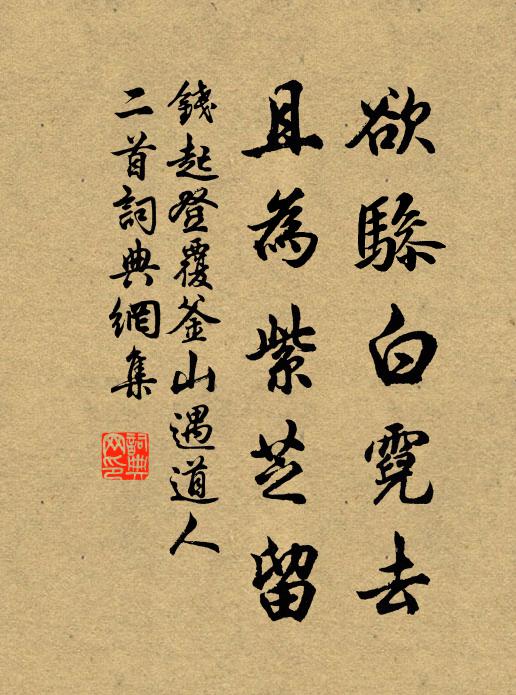 欲驂白霓去
且為紫芝留
錢起登覆釜山遇道人
二首詞典網集
詞典
网印